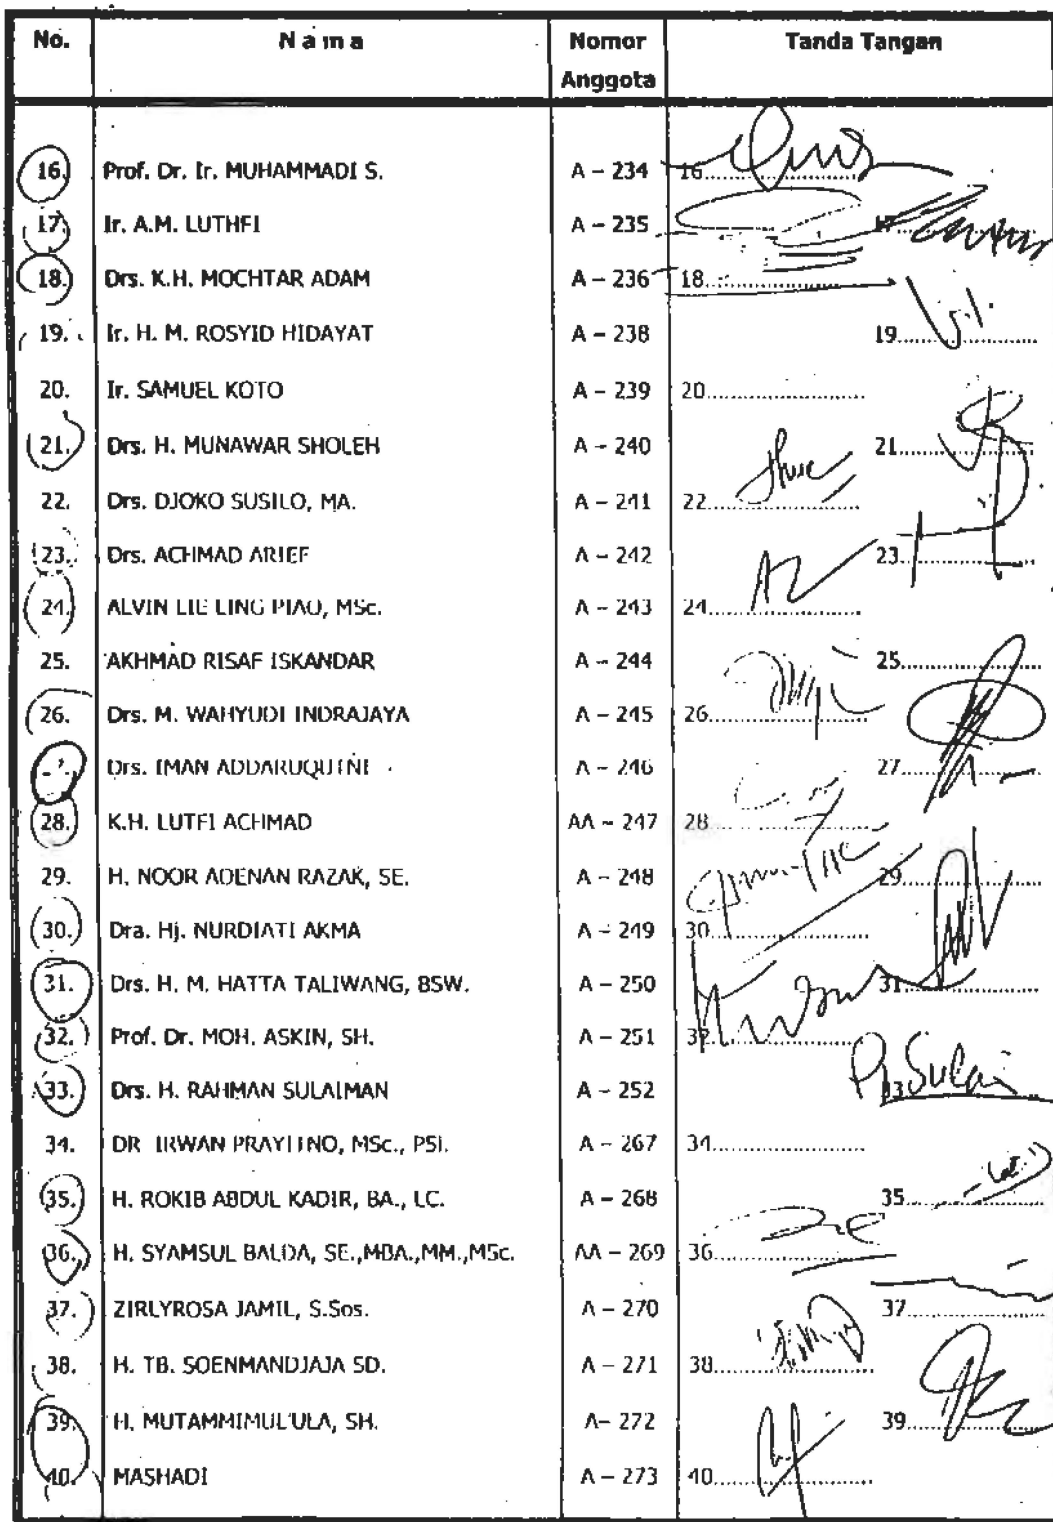 No. Nama Nomor Anggota Tanda Tangan
16. Prof. Dr. Ir. MUHAMMADI S. A – 234 16
17. Ir. A.M. LUTHFI A – 235 17
18. Drs. K.H. MOCHTAR ADAM A – 236 18
19. Ir. H. M. ROSYID HIDAYAT A – 238 19
20. Ir. SAMUEL KOTO A – 239 20
21. Drs. H. MUNAWAR SHOLEH A – 240 21
22. Drs. DJOKO SUSILO, MA. A – 241 22
23. Drs. ACHMAD ARIEF A – 242 23
24. ALVIN LIE LING PIAO, MSc. A – 243 24
25. AKHMAD RISAF ISKANDAR A – 244 25
26. Drs. M. WAHYUDI INDRAJAYA A – 245 26
Drs. IMAN ADDARUQUTNI A – 246 27
28. K.H. LUTFI ACHMAD AA – 247 28
29. H. NOOR ADENAN RAZAK, SE. A – 248 29
30. Dra. Hj. NURDIATI AKMA A – 249 30
31. Drs. H. M. HATTA TALIWANG, BSW. A – 250 31
32. Prof. Dr. MOH. ASKIN, SH. A – 251 32
33. Drs. H. RAHMAN SULAIMAN A – 252 33
34. DR IRWAN PRAYITNO, MSc., PSi. A – 267 34
35. H. ROKIB ABDUL KADIR, BA., LC. A – 268 35
36. H. SYAMSUL BALDA, SE.,MBA.,MM.,MSc. AA – 269 36
37. ZIRLYROSA JAMIL, S.Sos. A – 270 37
38. H. TB. SOENMANDJAJA SD. A – 271 38
39. H. MUTAMMIMUL'ULA, SH. A– 272 39
40. MASHADI A – 273 40